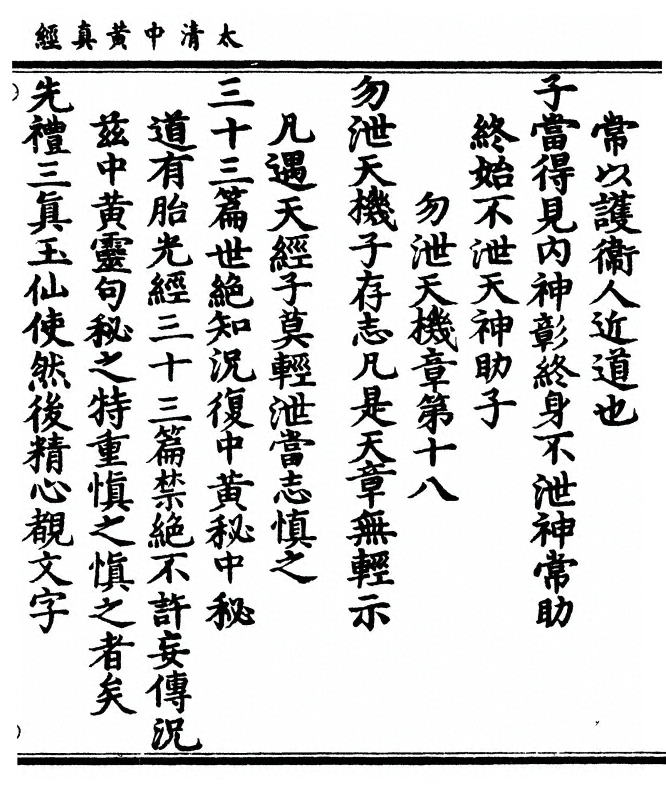 太清中黃真經
常以護衞人近道也
子當得見內神彰終身不泄神常助
終始不泄天神助子
勿泄天機章第十八
勿泄天機子存志凡是天章無輕示
凡遇天經子莫輕泄當志慎之
三十三篇世絶知況復中黃秘中秘
道有胎光經三十三篇禁絶不許妄傳況
兹中黃靈句秘之特重慎之慎之者矣
先禮三真玉仙使然後精心覩文字